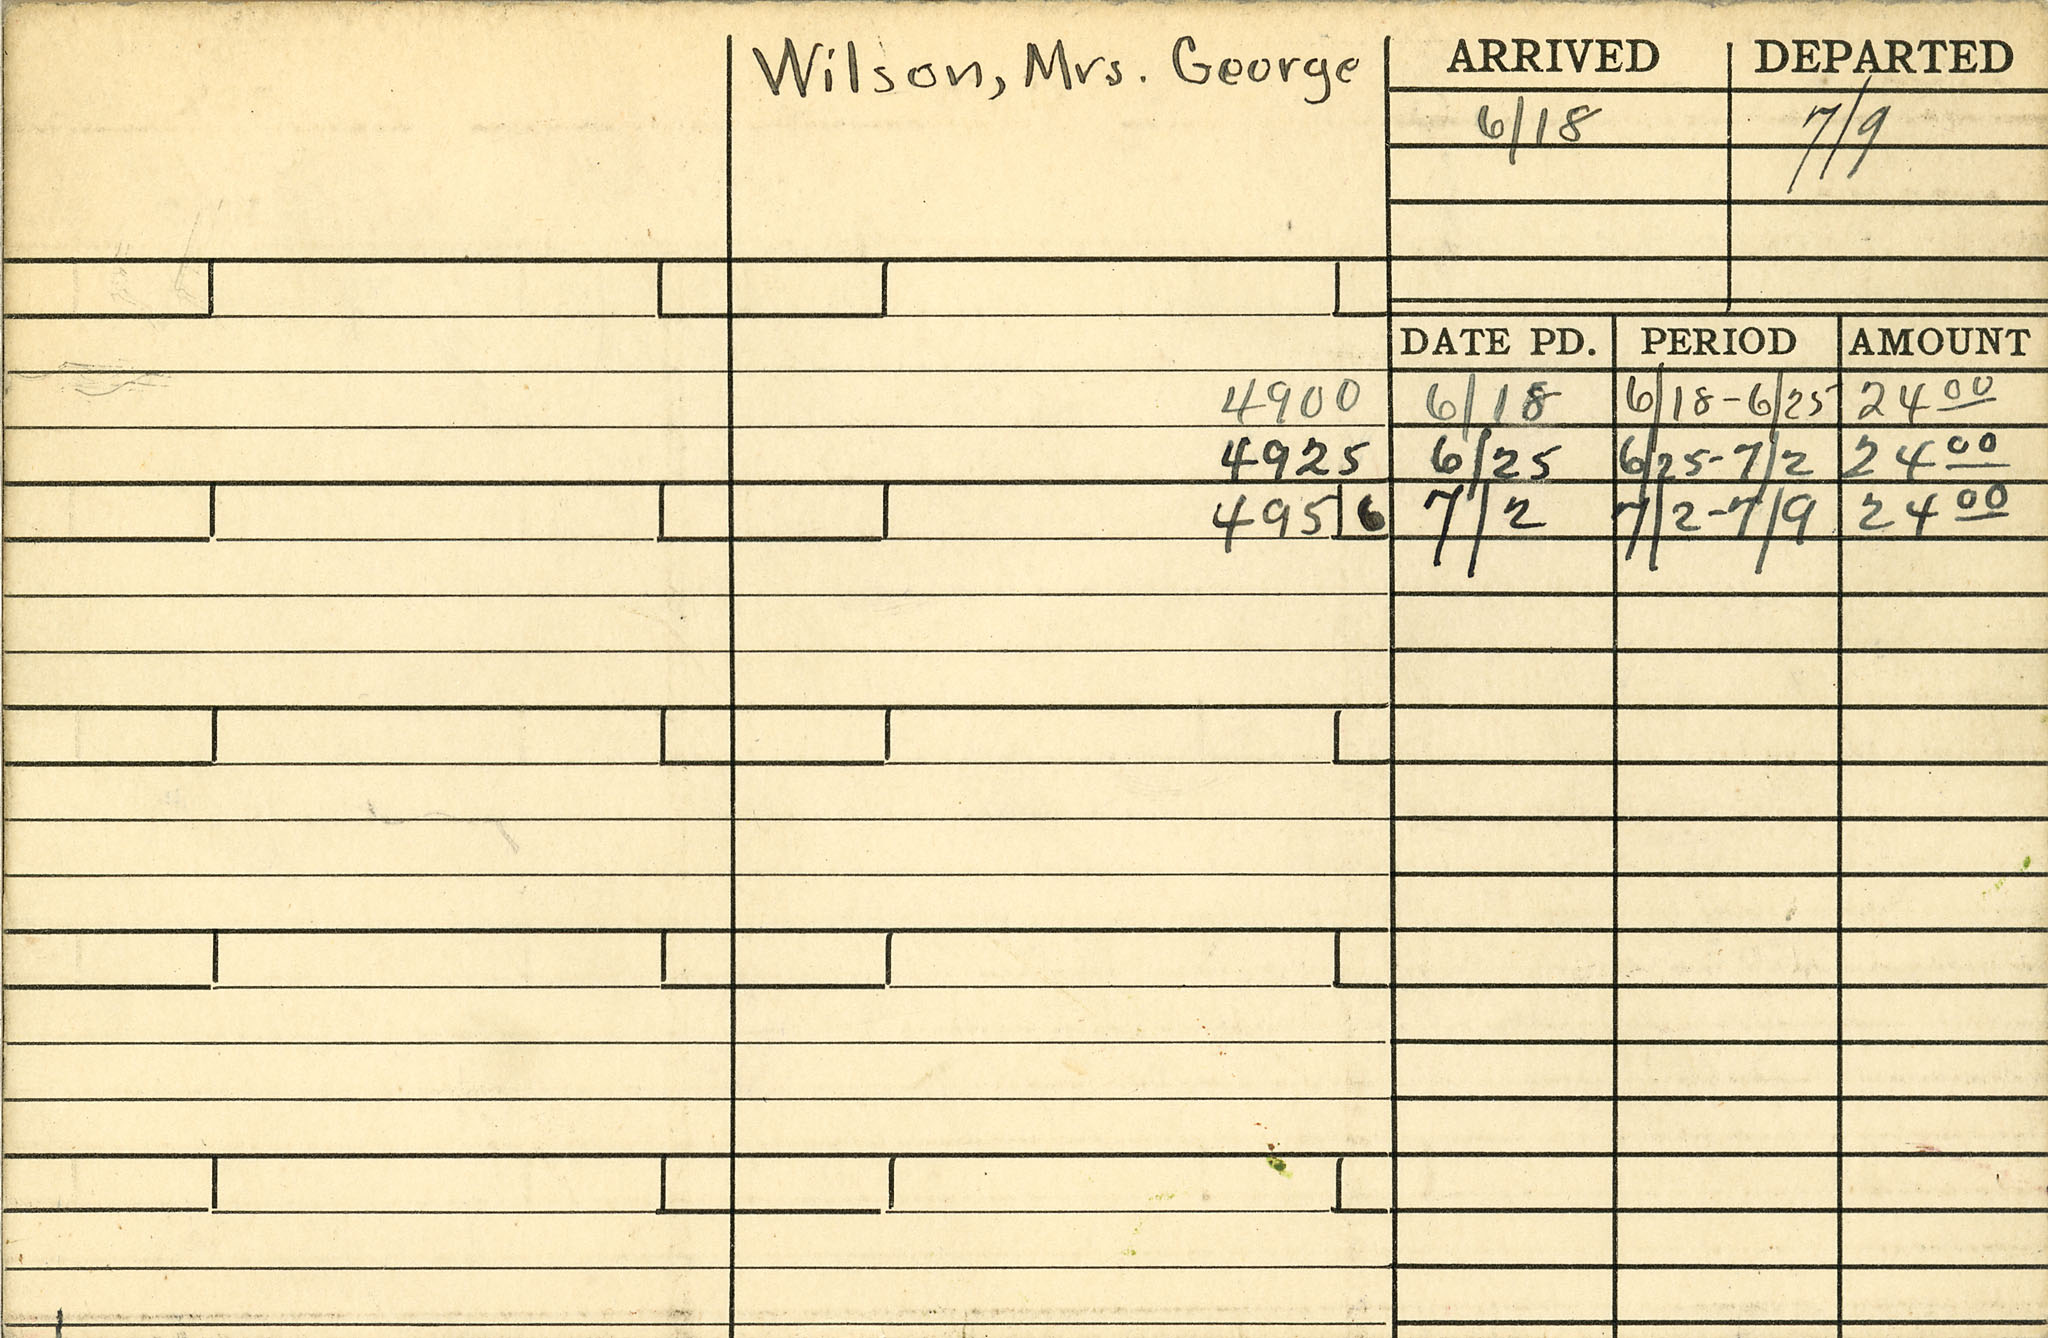 Wilson, Mrs. George
ARRIVED DEPARTED
6/18 7/9
DATE PD. PERIOD AMOUNT
4900 6/18 6/18-6/25 24 00
4925 6/25 6/25-7/2 24 00
4956 7/2 7/2-7/9 24 00